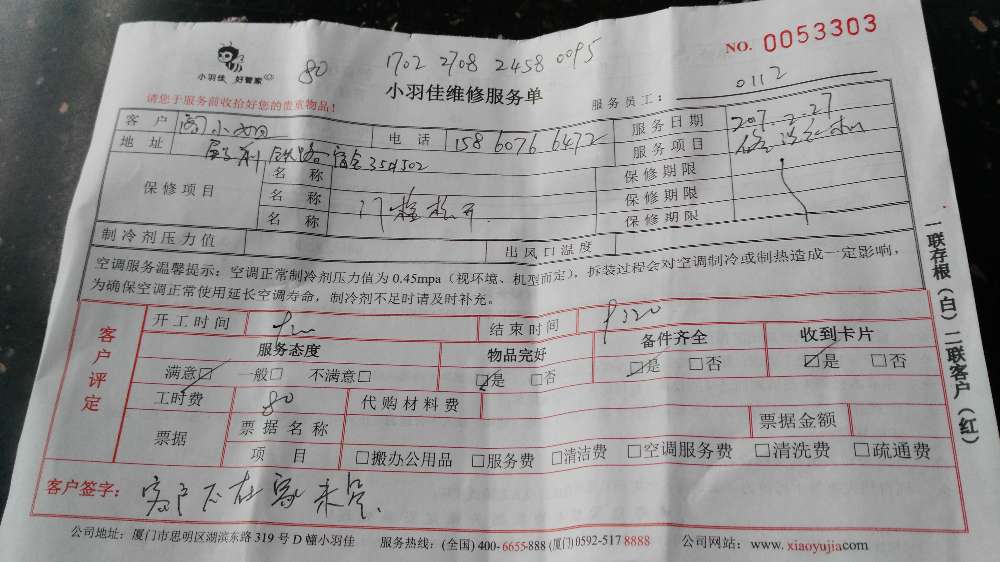 NO. 0053303
80 1702 2708 2458 0095
小羽佳 好管家
小羽佳维修服务单
请您于服务前收拾好您的贵重物品!
服务员工: 0112
客户 电话 158 6076 6472 服务日期
地址 宿舍 服务项目
保修项目 名称 保修期限
名称 保修期限
名称 保修期限
制冷剂压力值 出风口温度
空调服务温馨提示:空调正常制冷剂压力值为 0.45mpa(视环境、机型而定),拆装过程会对空调制冷或制热造成一定影响,
为确保空调正常使用延长空调寿命,制冷剂不足时请及时补充。
客户评定
开工时间 结束时间
服务态度 物品完好 备件齐全 收到卡片
满意□ 一般□ 不满意□ □是 □否 □是 □否 □是 □否
工时费 80 代购材料费
票据 票据名称 票据金额
项目 □搬办公用品 □服务费 □清洁费 □空调服务费 □清洗费 □疏通费
客户签字: 客户不在家
公司地址:厦门市思明区湖滨东路 319 号 D 幢小羽佳 服务热线:(全国) 400-6655-888 (厦门) 0592-517 8888 公司网站:www. xiaoyujia.com
一联存根(白)二联客户(红)